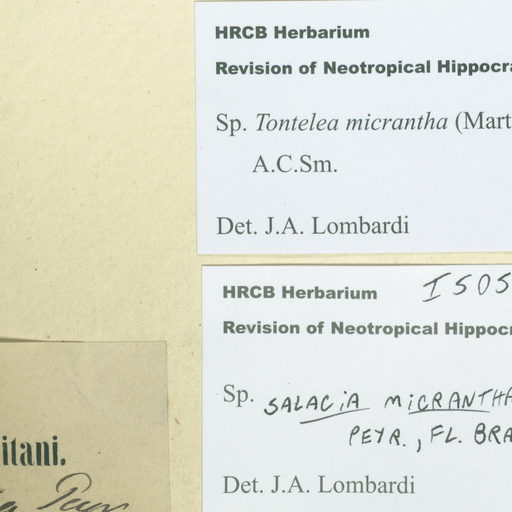 HRCB Herbarium
Revision of Neotropical Hippocra
Sp. Tontelea micrantha (Mart
A.C.Sm.
Det. J.A. Lombardi
HRCB Herbarium ISOS
Revision of Neotropical Hippocr
Sp. SALACIA MICRANTHA
PEYR., FL. BRA
Det. J.A. Lombardi
itani.